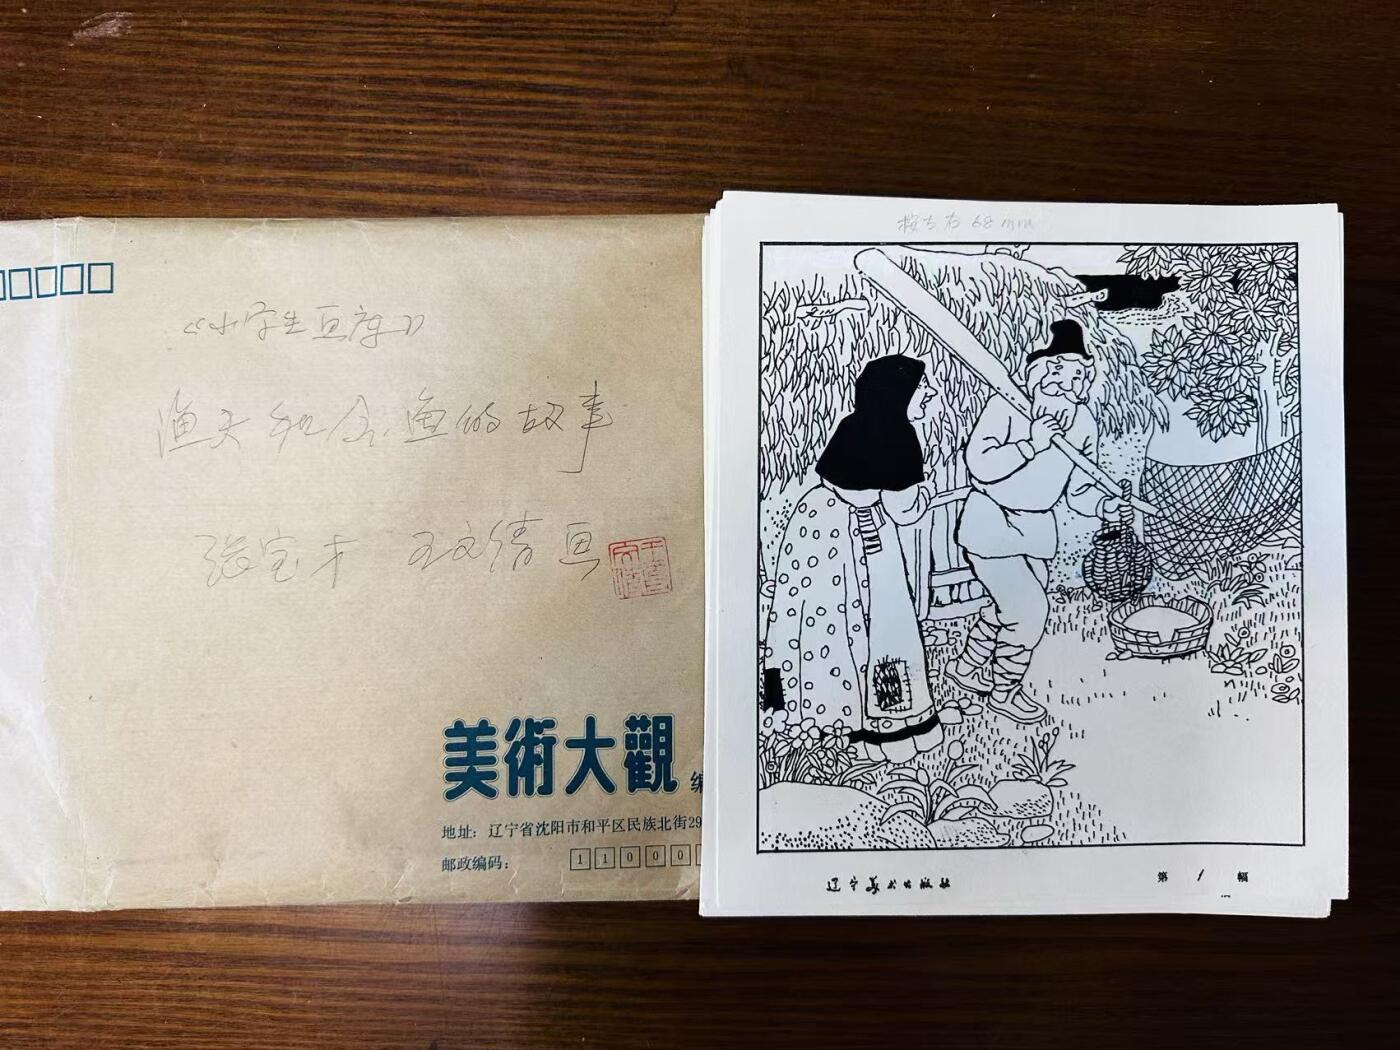 《小学生画库》
渔夫和金鱼的故事
张宝才 王文倩 画
美術大觀 编
地址：辽宁省沈阳市和平区民族北街29
邮政编码：11000
按左右68mm
辽宁美术出版社
第1幅